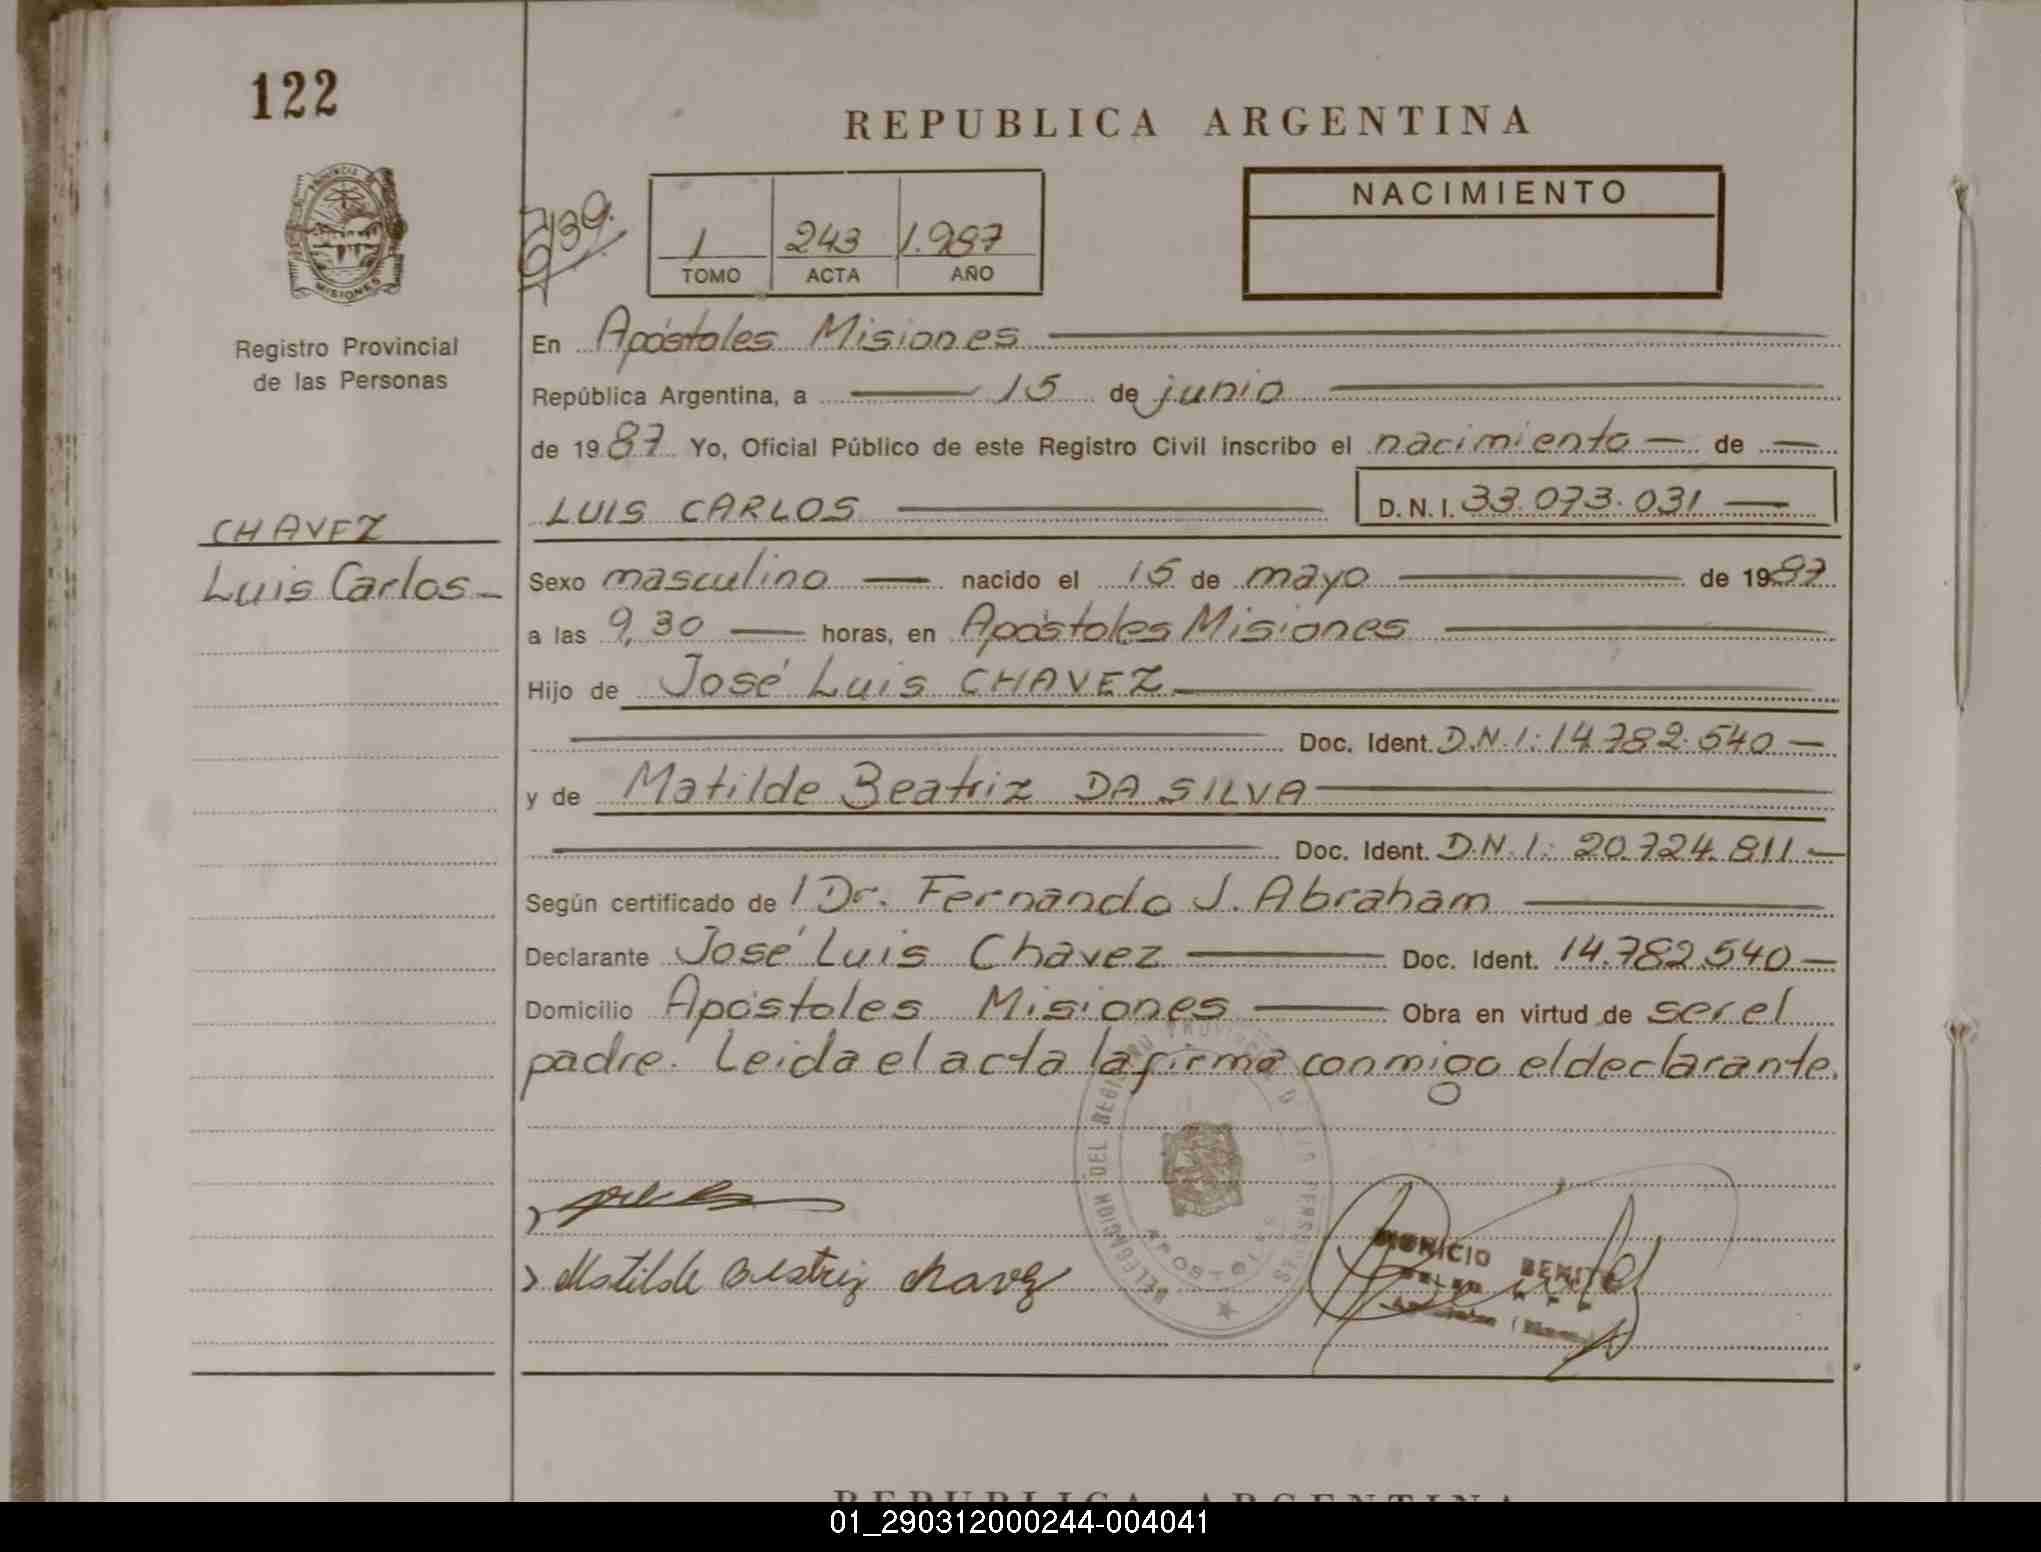 122
REPUBLICA ARGENTINA
PROVINCIA DE
MISIONES
Registro Provincial
de las Personas
1 243 1.987
TOMO ACTA AÑO
NACIMIENTO
En Apóstoles Misiones
República Argentina, a 15 de junio
de 1987 Yo, Oficial Público de este Registro Civil inscribo el nacimiento de
LUIS CARLOS D.N.I. 33.073.031
CHAVEZ
Luis Carlos
Sexo masculino nacido el 15 de mayo de 1987
a las 9,30 horas, en Apóstoles Misiones
Hijo de José Luis CHAVEZ
Doc. Ident. D.N.I: 14.782.540
y de Matilde Beatriz DA SILVA
Doc. Ident. D.N.I: 20.724.811
Según certificado de l Dr. Fernando J. Abraham
Declarante José Luis Chavez Doc. Ident. 14.782.540
Domicilio Apóstoles Misiones Obra en virtud de ser el
padre. Leida el acta la firma conmigo el declarante.
DELEGACION DEL REGISTRO PROVINCIAL DE LAS PERSONAS
APOSTOLES
Matilde Beatriz chavez
DIONICIO BENITEZ
REPUBLICA ARGENTINA
01_290312000244-004041